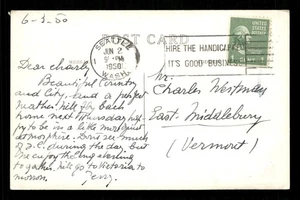 6-3-50
POST CARD
SEATTLE
JUN 2
9 PM
1950
WASH.
HIRE THE HANDICAPPED
IT'S GOOD BUSINESS
UNITED STATES
POSTAGE
1
Dear Charley
Beautiful County
and City, and perfect
weather. We'll fly back
home next Thursday. Will
joy to be in a little more quiet
atmosphere. Don't see much
of J.C. during the day, but
we enjoy the eng. starting
together. We go to Victoria to
morrow.
Terry.
Mr.
Charles Westway
East Middlebury
(Vermont)